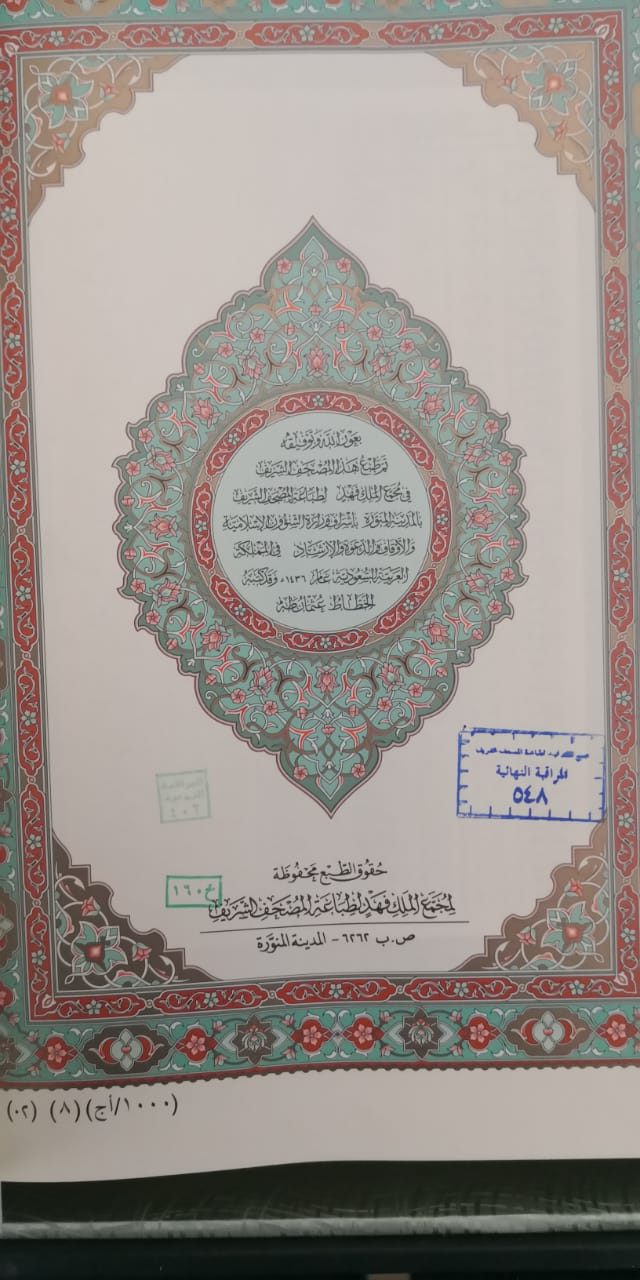 بعون الله وتوفيقه
تم طبع هذا المصحف الشريف
في مجمع الملك فهد لطباعة المصحف الشريف
بالمدينة المنورة بإشراف وزارة الشئون الإسلامية
والأوقاف والدعوة والإرشاد في المملكة
العربية السعودية عام ١٤٣٦ه وقد كتبه
الخطاط عثمان طه
مجمع الملك فهد لطباعة المصحف الشريف
المراقبة النهائية
٥٤٨
٤٠٦
حقوق الطبع محفوظة
لمجمع الملك فهد لطباعة المصحف الشريف
خ ١٦٠
ص.ب ٦٢٦٢ - المدينة المنورة
(١٠٠٠/أج) (٨) (٠٢)